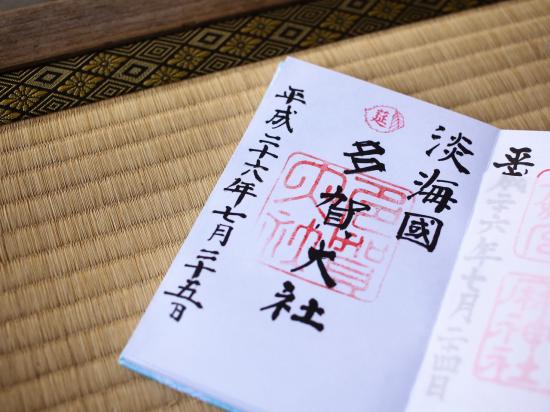 平成二十六年七月二十四日
莚
淡海國
多賀大社
多賀大神
平成二十六年七月二十五日